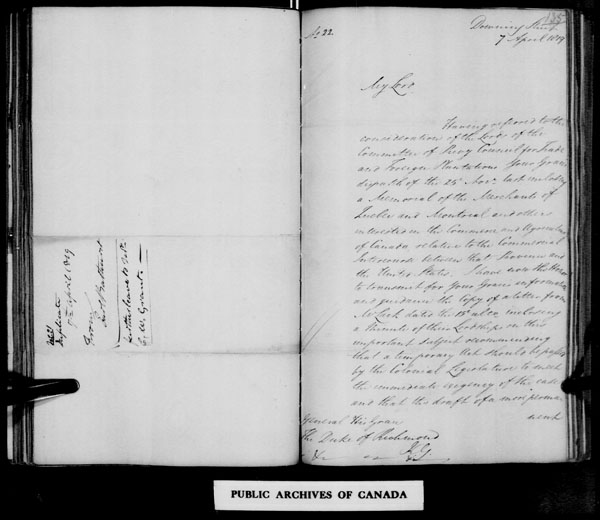 No 22
Duplicate
7th April 1819
From
Earl Bathurst
185
Downing Street
7 April 1819
No 22.
My Lord
Having referred to the
consideration of the Lords of the
Committee of Privy Council for Trade
and Foreign Plantations Your Grace's
dispatch of the 25 Novr. last inclosing
a Memorial of the Merchants of
Quebec and Montreal and others
interested in the Commerce and Agriculture
of Canada relative to the Commercial
Intercourse between that Province and
the United States. I have now the Honor
to transmit for Your Grace's information
and guidance the copy of a letter from
Mr Lack dated the 15th ulto. inclosing
a Minute of their Lordships on this
important subject recommending
that a temporary Act should be passed
by the Colonial Legislature to meet
the immediate exigency of the case
and that the draft of a more perma
nent
General His Grace
The Duke of Richmond
PUBLIC ARCHIVES OF CANADA